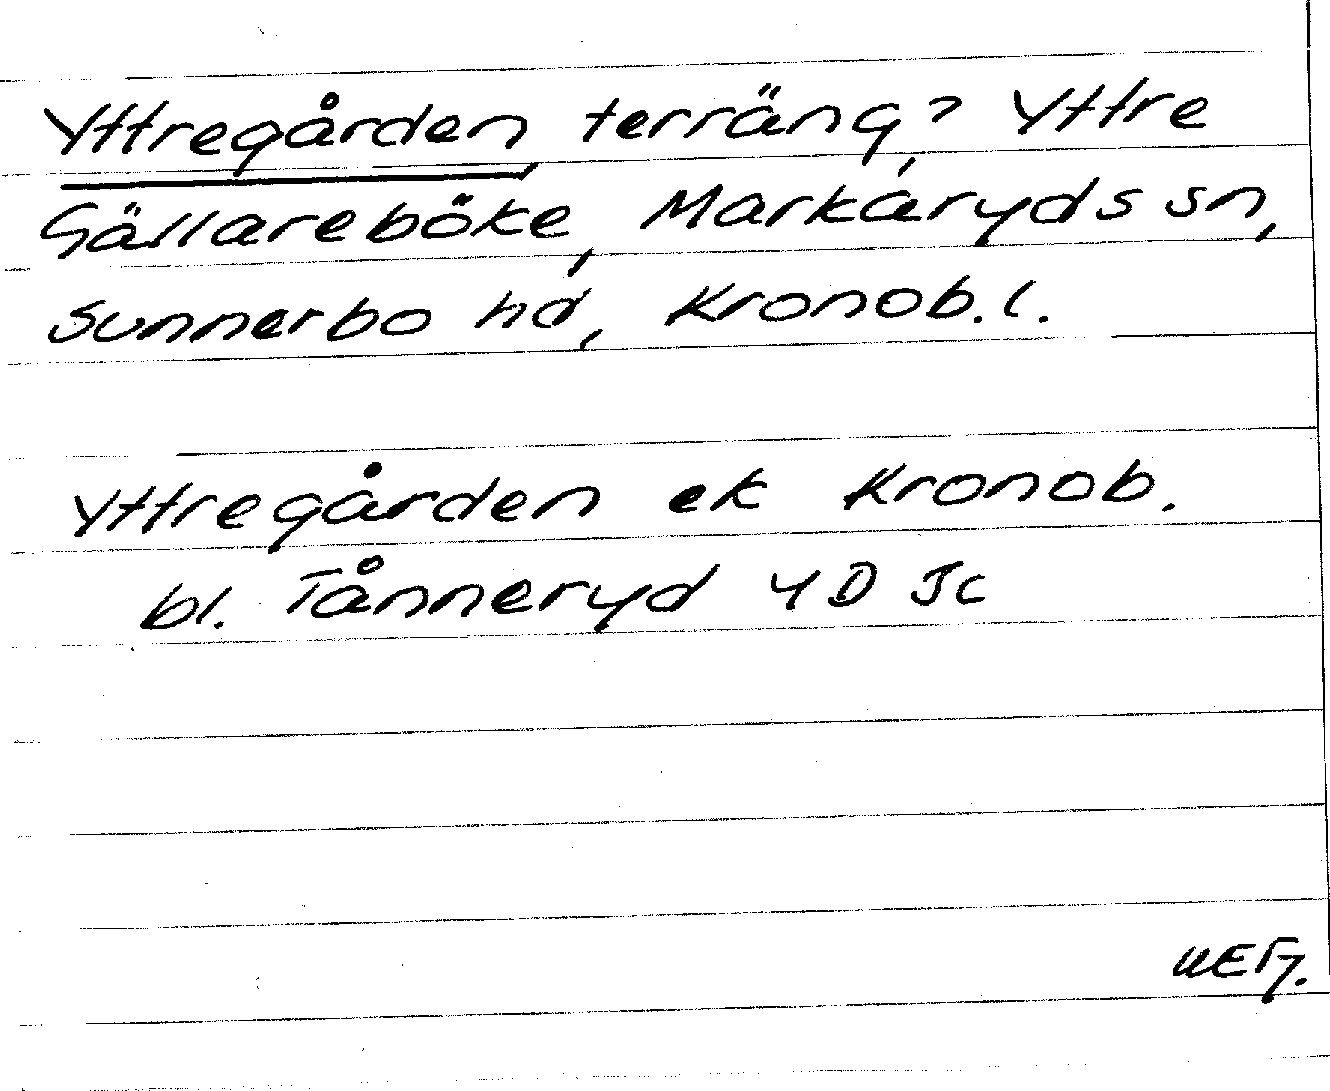 Yttregården, terräng? Yttre
Gällareböke, Markaryds sn,
Sunnerbo hd, Kronob. l.
Yttregården ek Kronob.
bl. Tånneryd 4D 5c